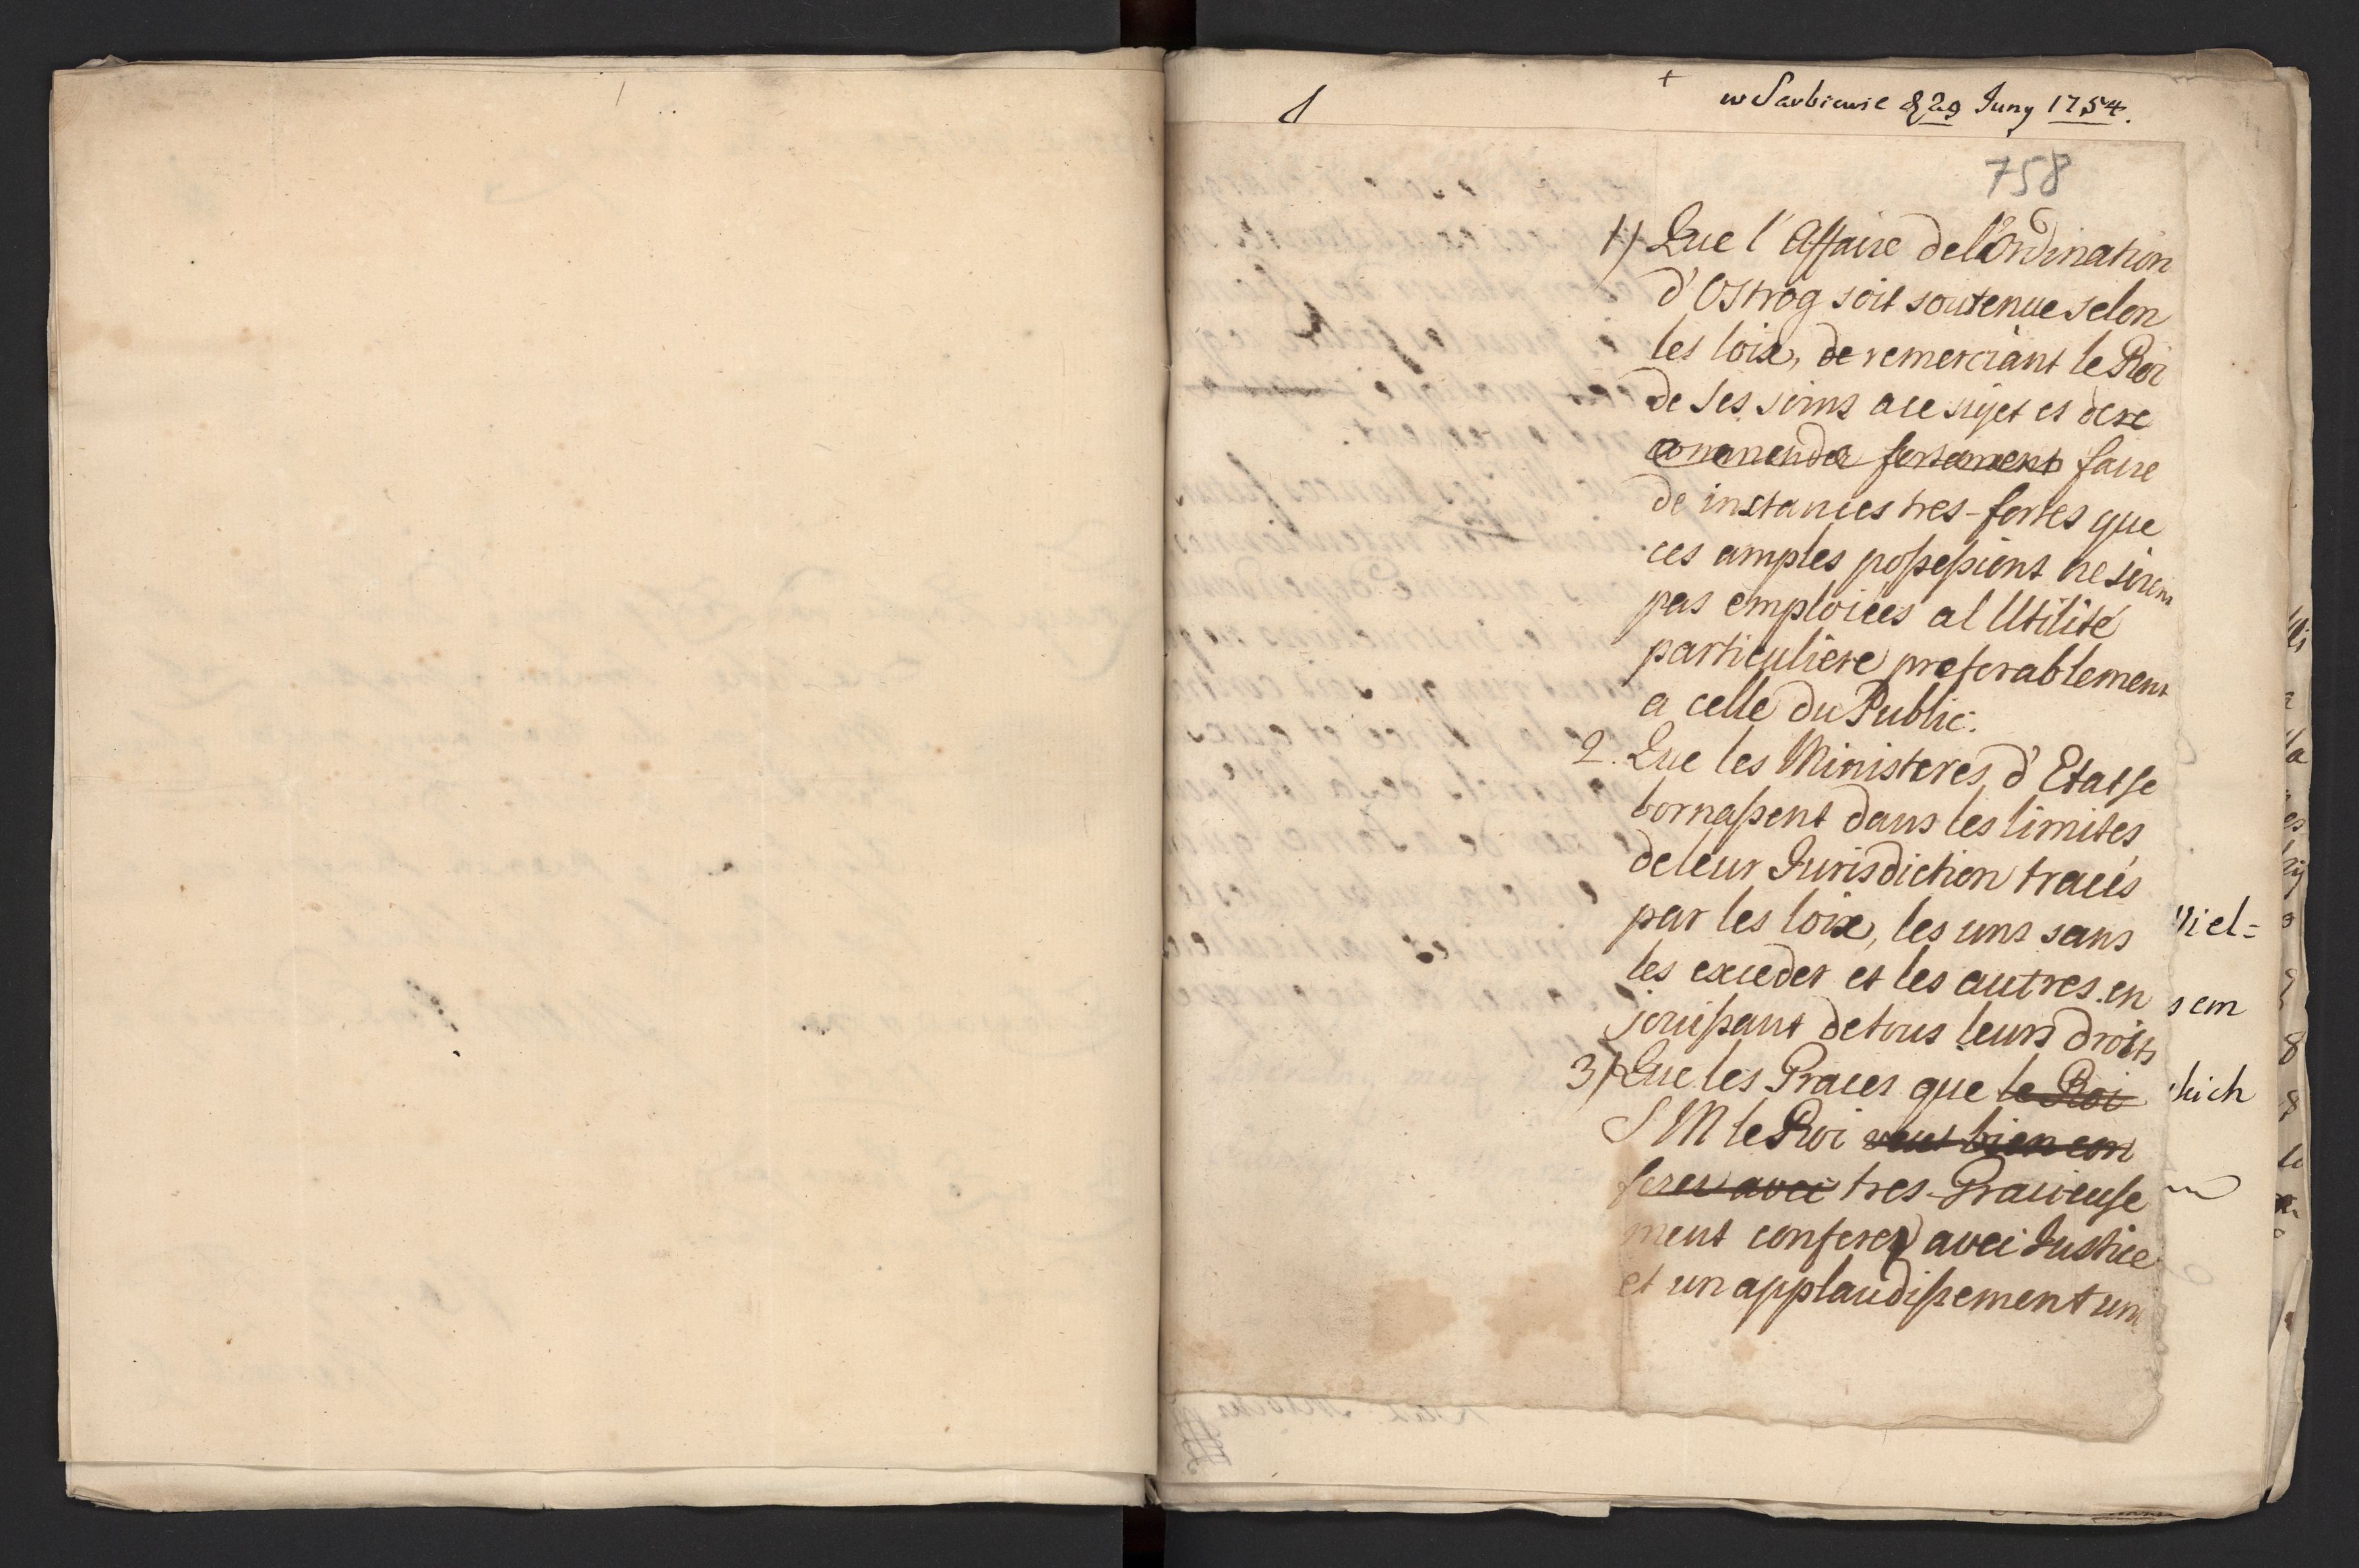 w Sarbiewie d 29 Juny 1754.
758
1) Que l'Affaire de l'Ordination
d'Ostrog soit soutenue selon
les loix, de remerciant le Roi
de ses soins a ce sujet et de re
commender fortement faire
de instances tres-fortes que
ces amples possessions ne soient
pas emploiees a l Utilité
particuliere preferablement
a celle du Public.
2. Que les Ministeres d'Etat se
bornassent dans les limites
de leur Jurisdiction tracés
par les loix, les uns sans
les exceder et les autres en
jouissant de tous leurs droits
3) Que les Graces que le Roi
S M le Roi veut bien con
ferer avec tres-Gracieuse
ment conferer avec Justice
et un applaudissement uni
iel=
sem
kich